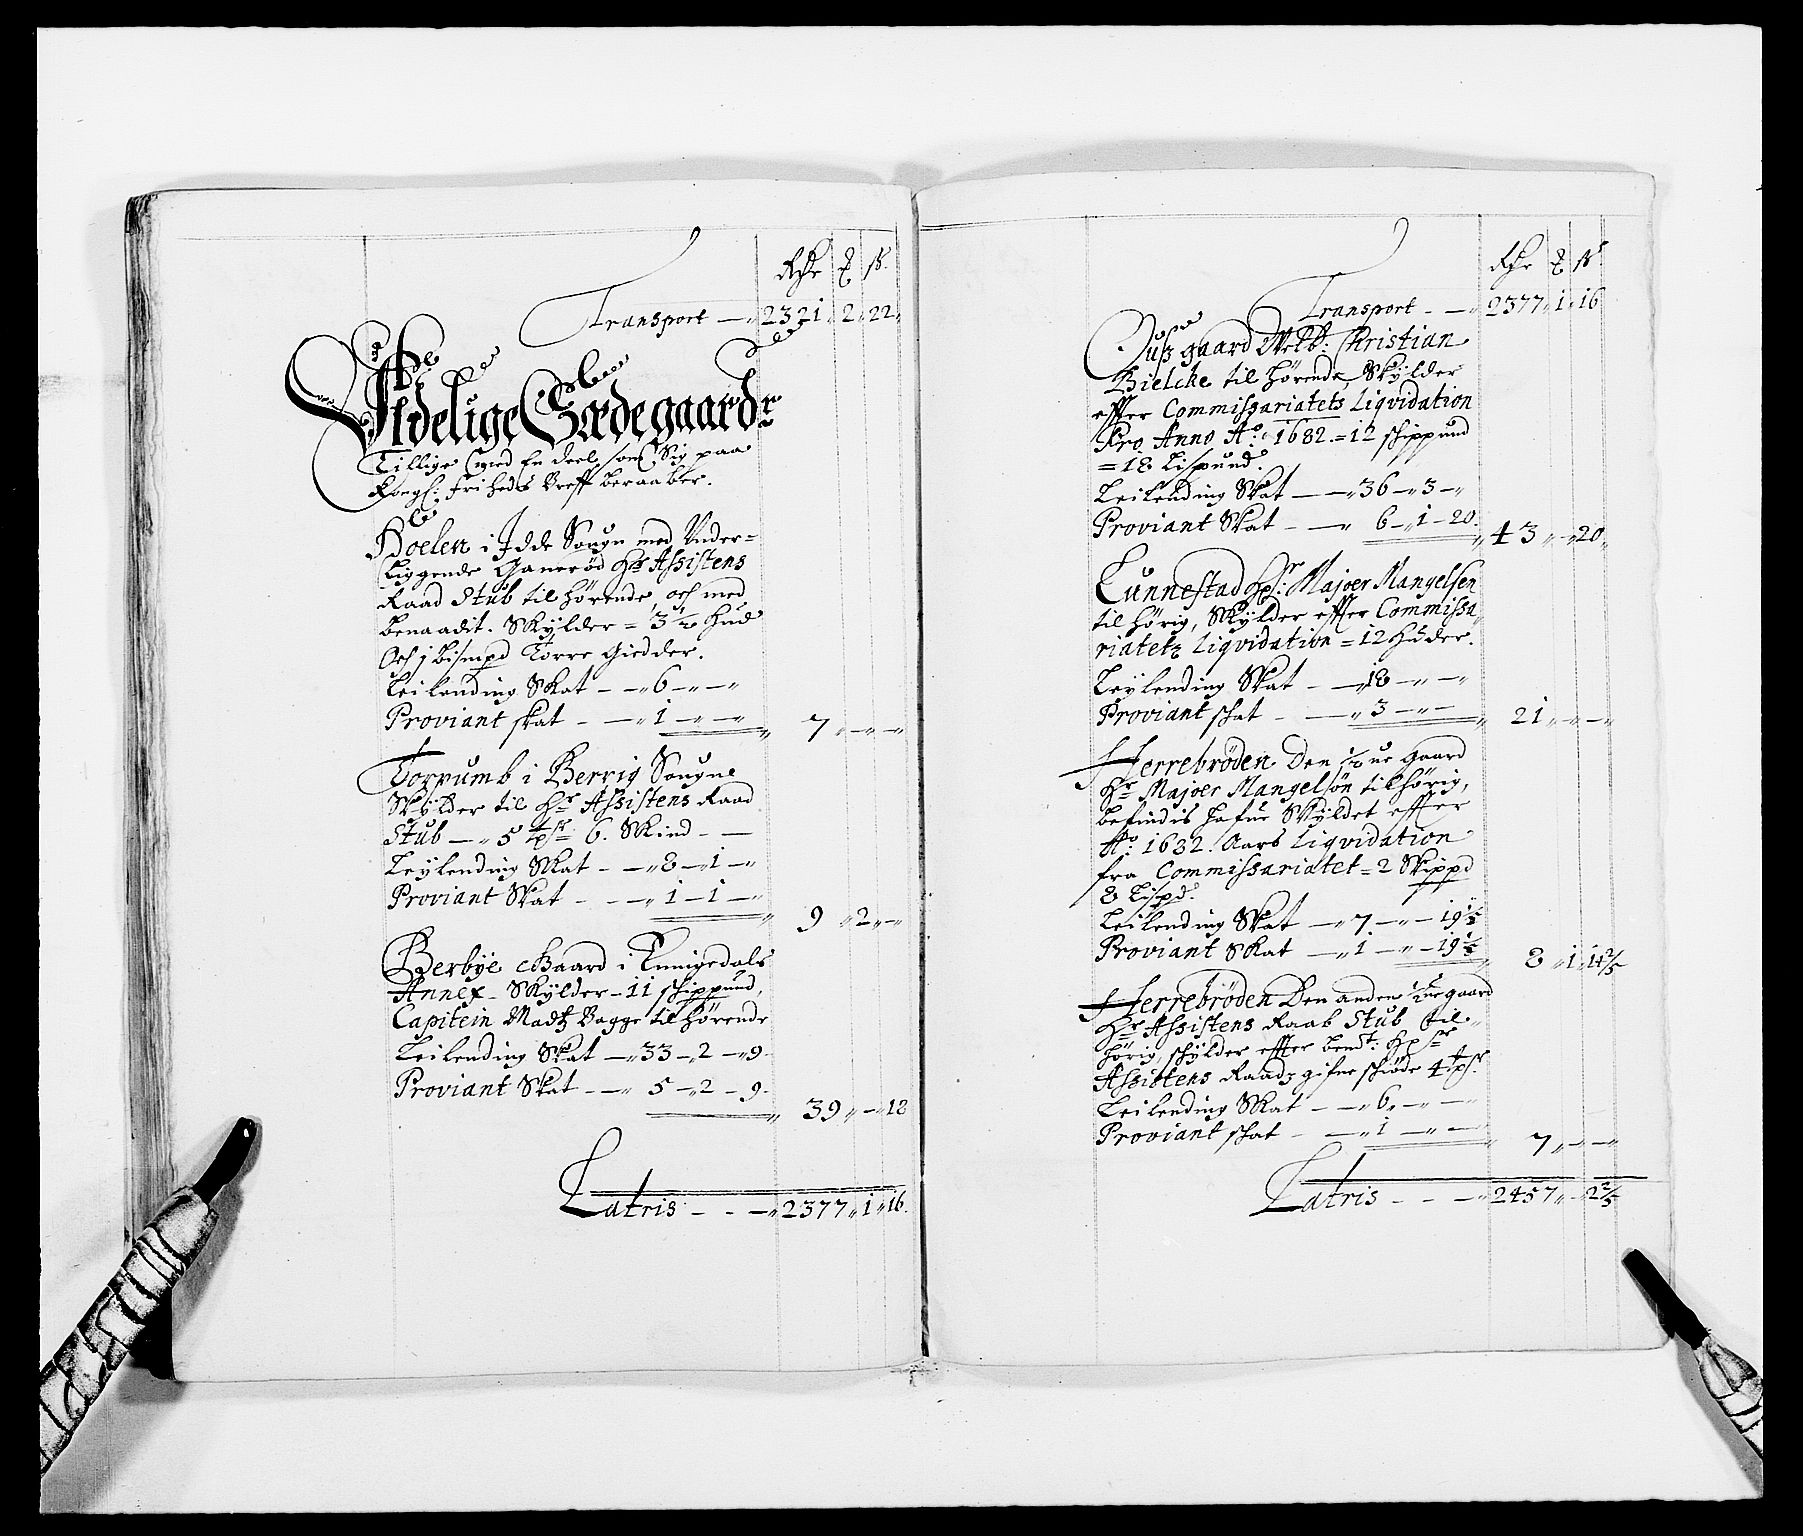 Rdr ƺ ß.
Transport — 2321 „ 2 „ 22 „
Adelige Sædegaarde
Tillige med En deel som Sig paa
Kongl: friheds Breff beraaber.
Boelen i Idde Sougn med Under-
liggende Ganerød Hr Assistens
Raad Stub til hørende, och med
benaadit. Skylder = 3 1/2 hud
Och j bismpd Torre Giedder.
Leilending Skat — „ 6 „ — „
Proviant skat — „ 1 — „ — „
7 „ — „ — „
Torpumb i Berrig Sougne
Skylder til Hr Assistens Raad
Stub — „ 5 tpsr 6. Skind —
Leylending Skat — „ 8 — 1 — „
Proviant Skat — „ 1 — 1 — „
9 „ 2 „ — „
Berbye Gaard i Enningedals
Annex — Skylder — 11 schippund,
Capitein Madtz Bagge til hørende
Leilending Skat — „ 33 — „ 2 — „ 9.
Proviant Skat — „ 5 — „ 2 — 9.
39 „ — „ 18
Latris — „ 2377 „ 1 „ 16.
Rdr ƺ ß
Transport — „ 2377 „ 1 „ 16
gaard Welb: Christian
Bielcke til hørende, Skylder
effter Commissariatets Liqvidation
Pro Anno Ao: 1682. = 12 schippund
= 18 Lispund.
Leilending Skat — „ 36 — „ 3 — „
Proviant Skat — „ 6 — „ 1 — 20.
43 „ — „ 20 „
Lunnestad Hr: Majoer Mangelsen
til hørig, Skylder effter Commissa
riatetz Liqvidation = 12 Huder.
Leylending Skat — „ 18 — „ — „
Proviant schat — „ 3 — „ —
21 „ — „ — „
Herrebrøden Den 1/2ue Gaard
Hr Majoer Mangelsøn tilhørig,
befindis hafue Skyldet effter
Ao: 1682. Aars Liqvidation
fra Commissariatet = 2 Skippd
8 Lispd.
Leilending Skat — „ 7 — „ — 19 1/5
Proviant Skat — „ 1 — „ — 19 1/5
8 „ 1 „ 14 2/5
Herrebrøden Den anden 1/2ue gaard
Hr Assistens Raad Stub til-
hørig, schylder effter bemt: Hr
Assistens Raadz gifne schiøde 4 tpsr.
Leilending Skat — „ 6 „ — „ —
Proviant schat — „ 1 — „ —
7 „ — „ — „
Latris — „ 2457 „ — „ 2 2/5